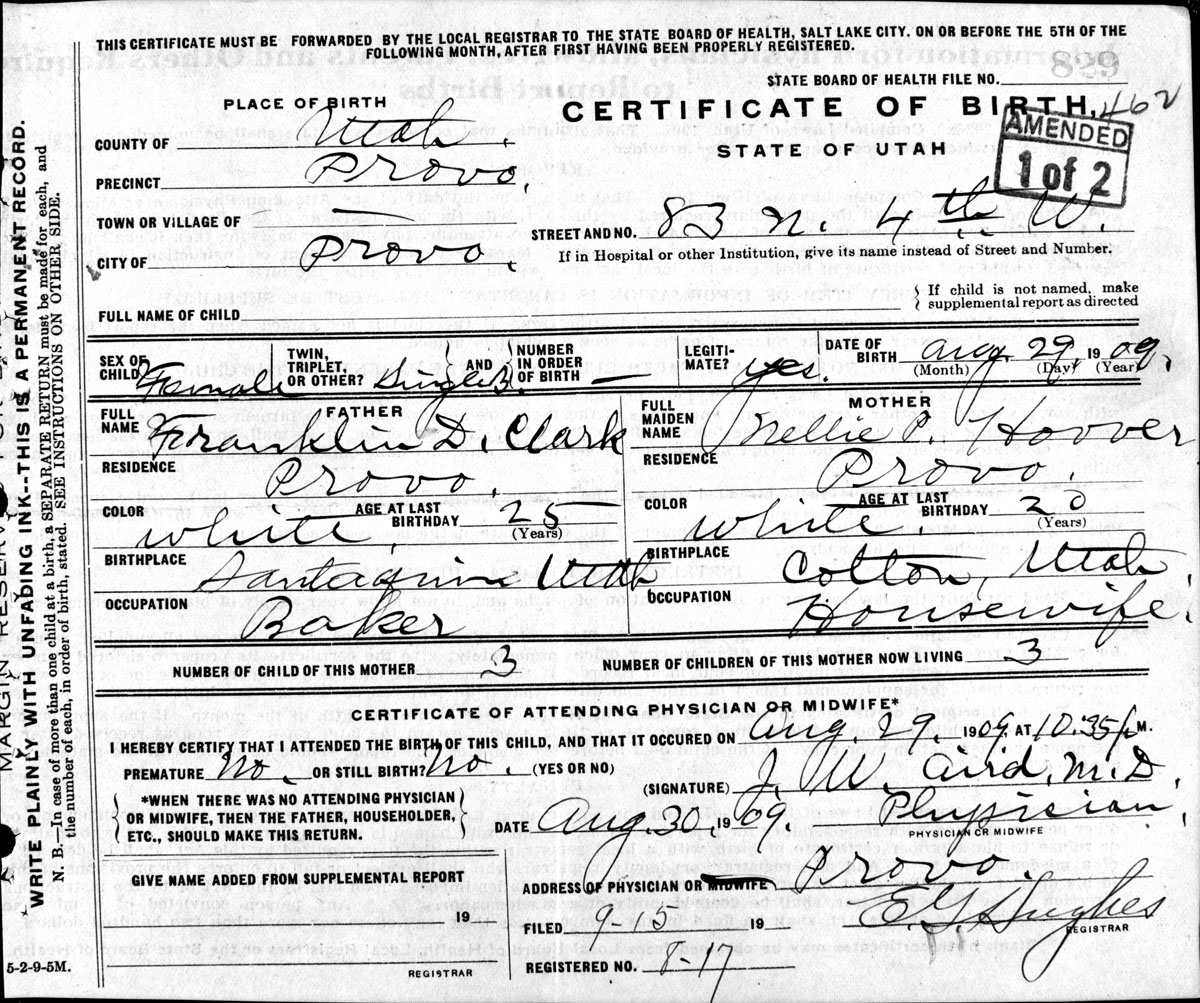 THIS CERTIFICATE MUST BE FORWARDED BY THE LOCAL REGISTRAR TO THE STATE BOARD OF HEALTH, SALT LAKE CITY. ON OR BEFORE THE 5TH OF THE
FOLLOWING MONTH, AFTER FIRST HAVING BEEN PROPERLY REGISTERED.
STATE BOARD OF HEALTH FILE NO.
462
CERTIFICATE OF BIRTH
STATE OF UTAH
AMENDED
1 of 2
PLACE OF BIRTH
COUNTY OF Utah.
PRECINCT Provo.
TOWN OR VILLAGE OF
CITY OF Provo.
STREET AND NO. 83 N. 4th W.
If in Hospital or other Institution, give its name instead of Street and Number.
FULL NAME OF CHILD
If child is not named, make
supplemental report as directed
SEX OF CHILD Female
TWIN, TRIPLET, OR OTHER? Single
AND NUMBER IN ORDER OF BIRTH —
LEGITI-MATE? yes.
DATE OF BIRTH Aug 29, 1909.
(Month) (Day) (Year)
FATHER
FULL NAME Franklin D. Clark
RESIDENCE Provo.
COLOR White.
AGE AT LAST BIRTHDAY 25
(Years)
BIRTHPLACE Utah
OCCUPATION Baker
MOTHER
FULL MAIDEN NAME Nellie P. Hoover
RESIDENCE Provo
COLOR White.
AGE AT LAST BIRTHDAY 20
(Years)
BIRTHPLACE Colton, Utah
OCCUPATION Housewife.
NUMBER OF CHILD OF THIS MOTHER 3
NUMBER OF CHILDREN OF THIS MOTHER NOW LIVING 3
CERTIFICATE OF ATTENDING PHYSICIAN OR MIDWIFE*
I HEREBY CERTIFY THAT I ATTENDED THE BIRTH OF THIS CHILD, AND THAT IT OCCURED ON Aug 29 1909. AT 10.35 P. M.
PREMATURE No. OR STILL BIRTH? No. (YES OR NO)
(SIGNATURE) J. W. Aird, M.D.
*WHEN THERE WAS NO ATTENDING PHYSICIAN
OR MIDWIFE, THEN THE FATHER, HOUSEHOLDER,
ETC., SHOULD MAKE THIS RETURN.
DATE Aug. 30, 1909 Physician
PHYSICIAN OR MIDWIFE
GIVE NAME ADDED FROM SUPPLEMENTAL REPORT
19
REGISTRAR
ADDRESS OF PHYSICIAN OR MIDWIFE Provo
FILED 9-15 19 Hughes
REGISTRAR
REGISTERED NO. 8-17
5-2-9-5M.
MARGIN RESERV
*WRITE PLAINLY WITH UNFADING INK--THIS IS A PERMANENT RECORD.
N. B.—In case of more than one child at a birth, a SEPARATE RETURN must be made for each, and
the number of each, in order of birth, stated. SEE INSTRUCTIONS ON OTHER SIDE.